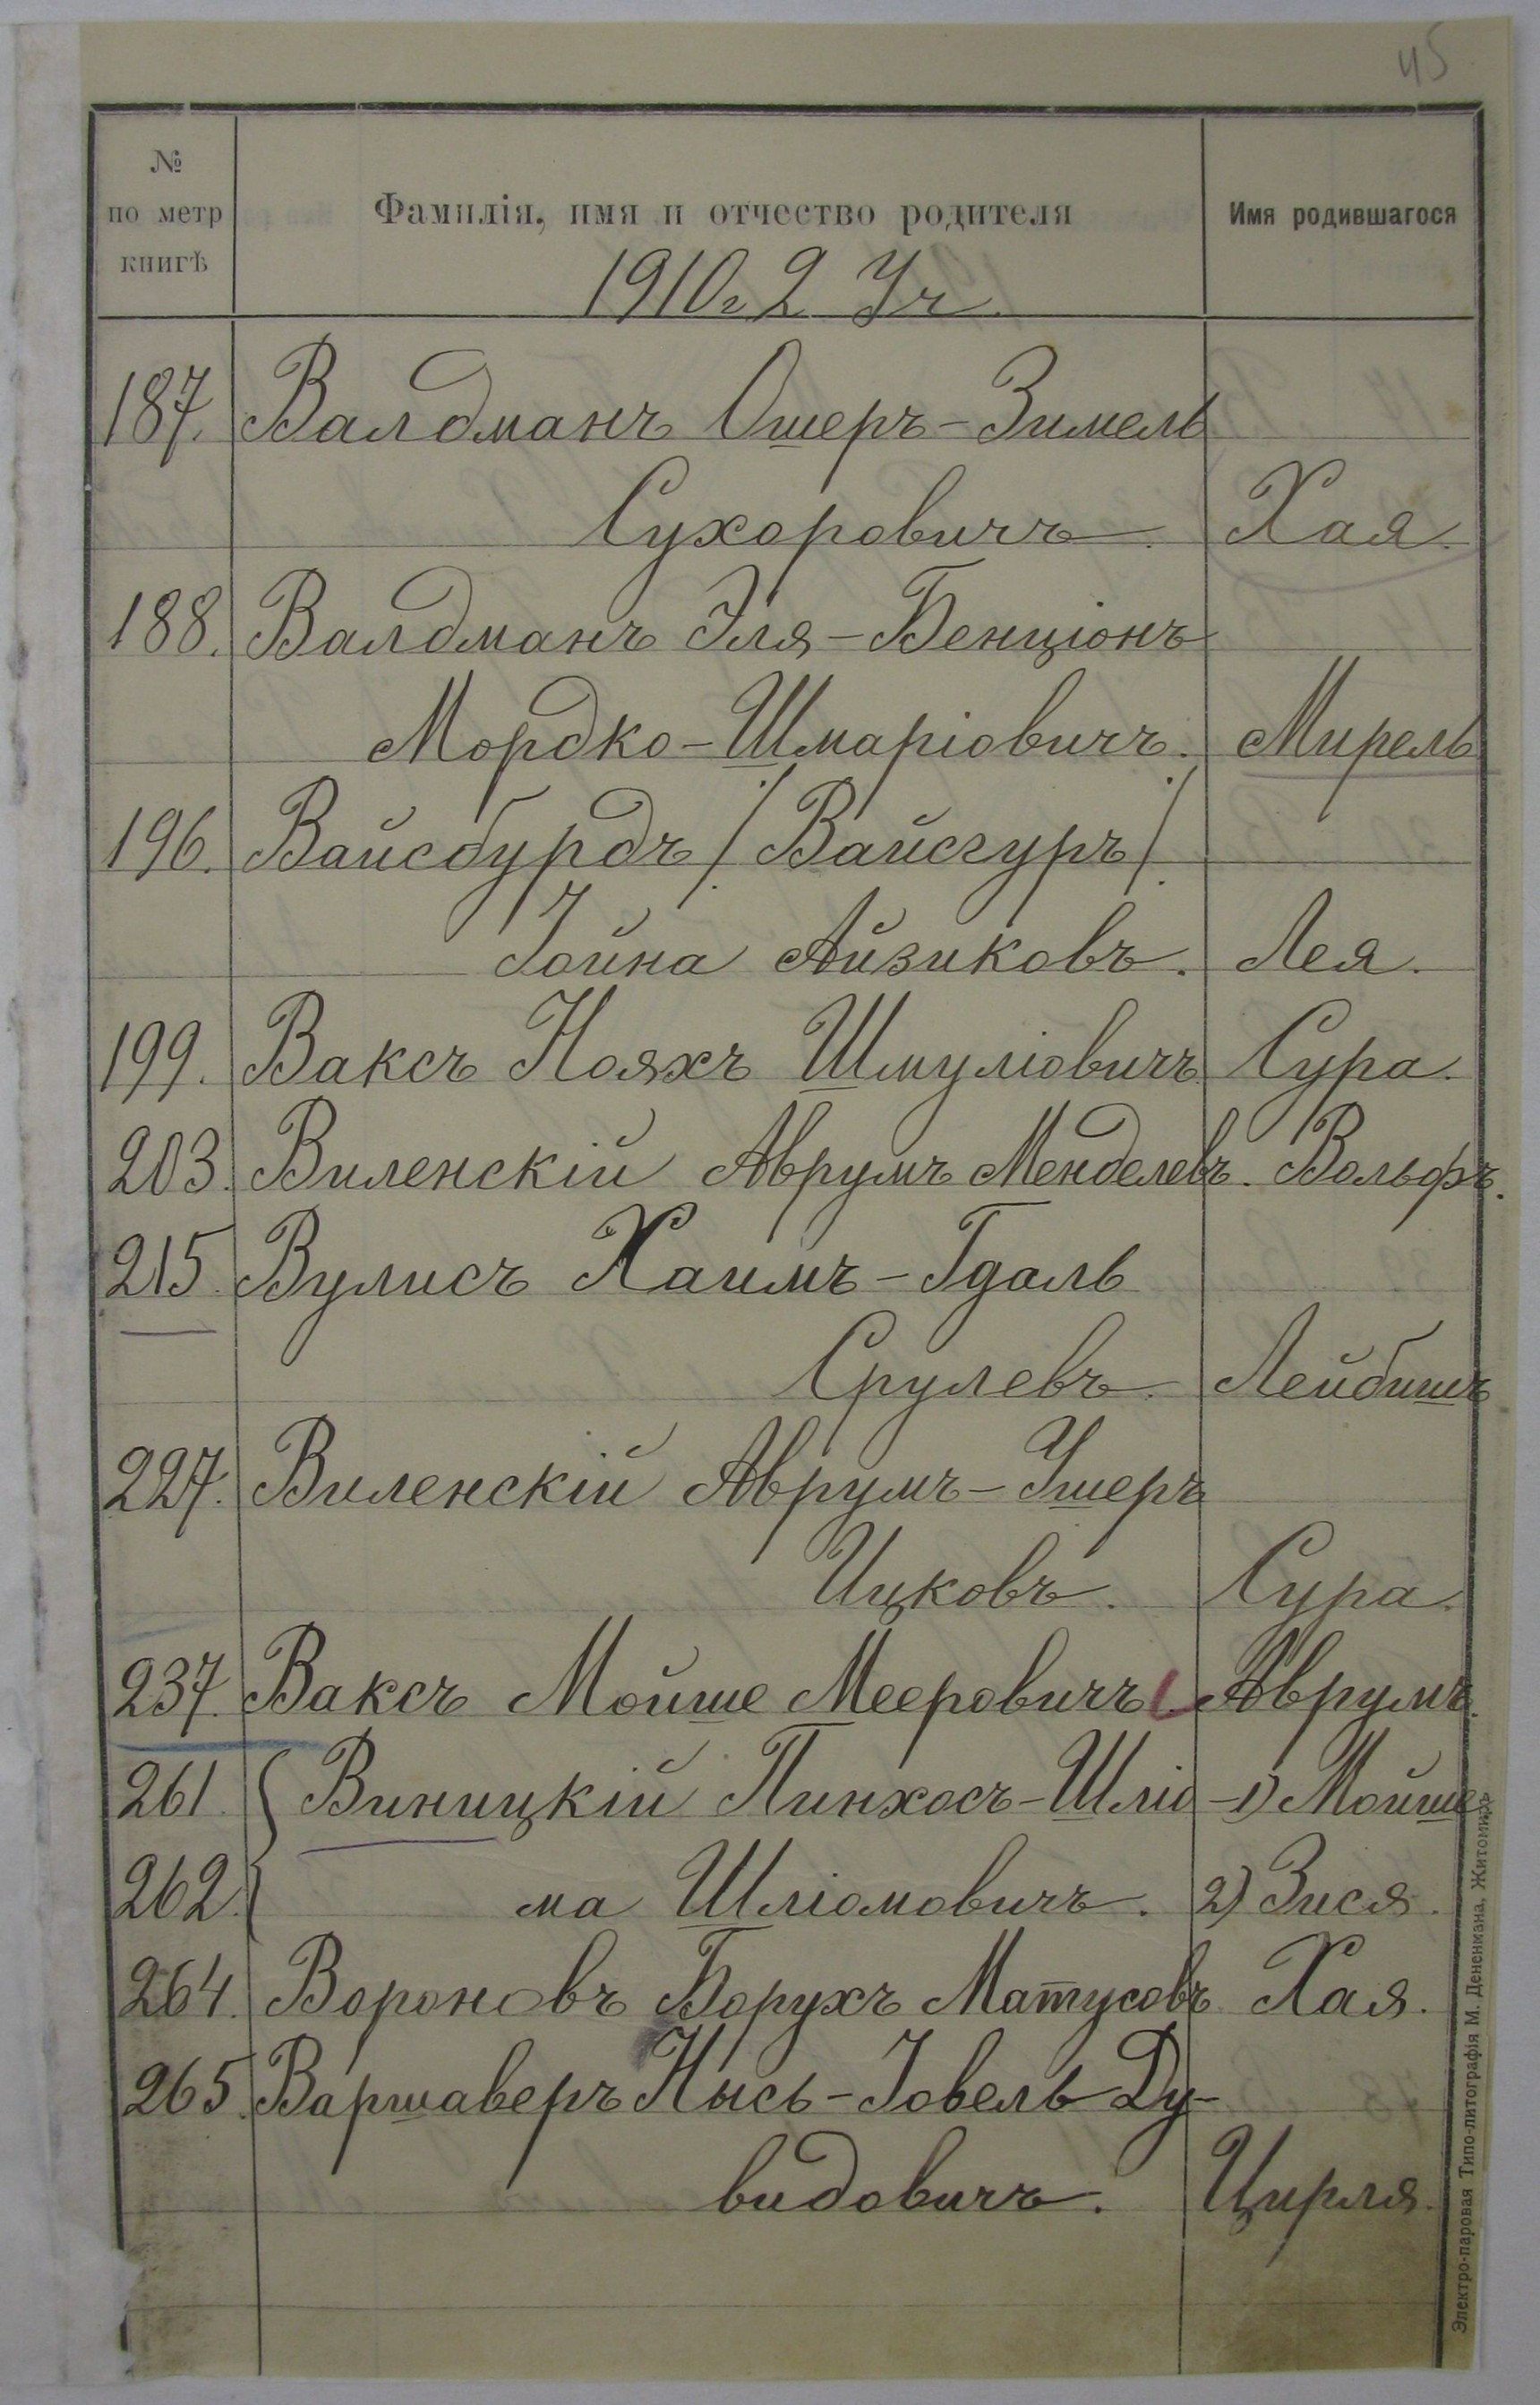 45
№ по метр книгѣ Фамилія, имя и отчество родителя Имя родившагося
1910 г 2 Уч.
187. Валдманъ Ошеръ-Зимель
Сухоровичъ. Хая.
188. Валдманъ Эля-Бенціонъ
Мордко-Шмаріовичъ. Мирель
196. Вайсбурдъ / Вайсгуръ /
Іойна Айзиковъ. Лея.
199. Ваксъ Нояхъ Шмуліовичъ. Сура.
203. Виленскій Аврумъ Менделевъ. Вольфъ.
215. Вулисъ Хаимъ-Гдаль
Срулевъ. Лейбишъ
227. Виленскій Аврумъ-Ушеръ
Ицковъ. Сура.
237. Ваксъ Мойше Мееровичъ. Аврумъ.
261. { Виницкій Пинхосъ-Шліо- 1) Мойше
262. { ма Шліомовичъ. 2) Зися.
264. Вороновъ Борухъ Матусовъ Хая.
265. Варшаверъ Нысь-Іовель Ду-
видовичъ. Цирля.
Электро-паровая Типо-литографія М. Дененмана, Житомиръ